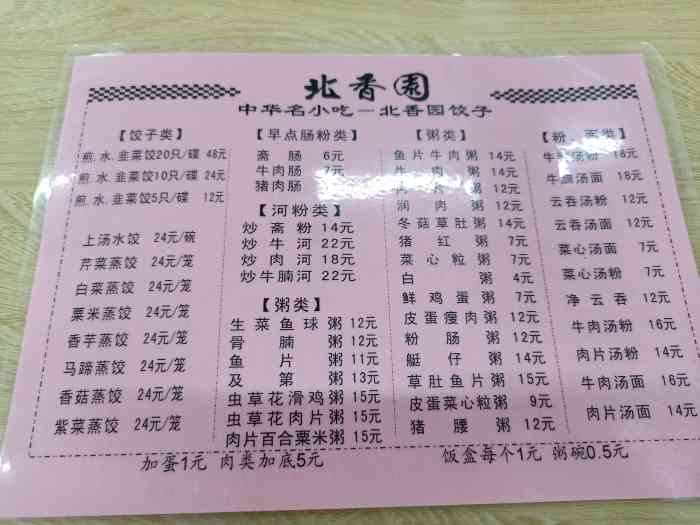 北香园
中华名小吃—北香园饺子
【饺子类】
煎.水.韭菜饺20只/碟 48元
煎.水.韭菜饺10只/碟 24元
煎.水.韭菜饺5只/碟 12元
上汤水饺 24元/碗
芹菜蒸饺 24元/笼
白菜蒸饺 24元/笼
粟米蒸饺 24元/笼
香芋蒸饺 24元/笼
马蹄蒸饺 24元/笼
香菇蒸饺 24元/笼
紫菜蒸饺 24元/笼
【早点肠粉类】
斋肠 6元
牛肉肠 7元
猪肉肠
【河粉类】
炒斋粉 14元
炒牛河 22元
炒肉河 18元
炒牛腩河 22元
【粥类】
生菜鱼球粥 12元
骨腩粥 12元
鱼片粥 11元
及第粥 13元
虫草花滑鸡粥 15元
虫草花肉片粥 15元
肉片百合粟米粥 15元
【粥类】
鱼片牛肉粥 14元
牛肉粥 14元
肉片粥 12元
润肉粥 12元
冬菇草肚粥 14元
猪红粥 7元
菜心粒粥 7元
白粥 4元
鲜鸡蛋粥 7元
皮蛋瘦肉粥 12元
粉肠粥 12元
艇仔粥 14元
草肚鱼片粥 15元
皮蛋菜心粒粥 9元
猪腰粥 12元
【粉、面类】
牛腩汤粉 18元
牛腩汤面 18元
云吞汤粉 12元
云吞汤面 12元
菜心汤面 7元
菜心汤粉 7元
净云吞 12元
牛肉汤粉 16元
肉片汤粉 14元
牛肉汤面 16元
肉片汤面 14元
加蛋1元 肉类加底5元
饭盒每个1元 粥碗0.5元